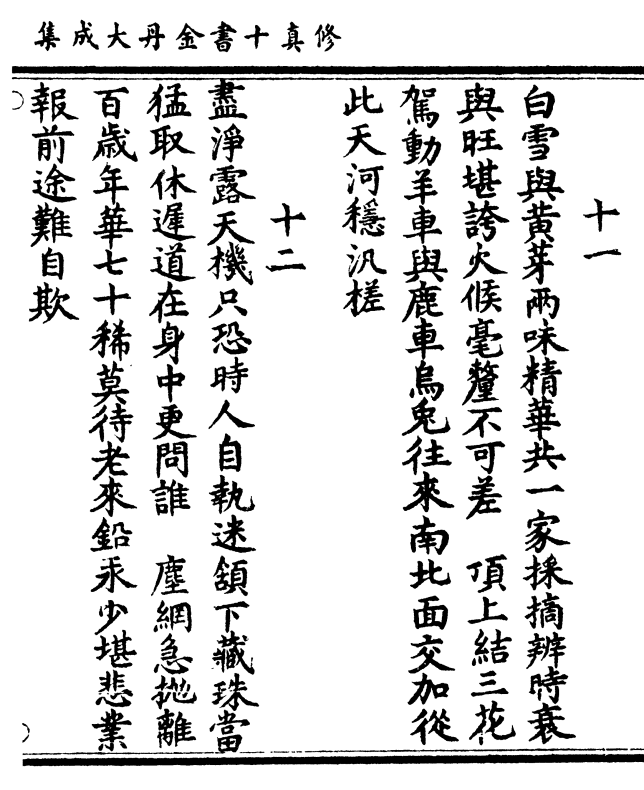 修真十書金丹大成集
十一
白雪與黃芽兩味精華共一家採摘辨時衰
與旺堪誇火候毫釐不可差　頂上結三花
駕動羊車與鹿車烏兔往來南北面交加從
此天河穩汎槎
十二
盡淨露天機只恐時人自執迷頷下藏珠當
猛取休遲道在身中更問誰　塵網急拋離
百歲年華七十稀莫待老來鉛汞少堪悲業
報前途難自欺